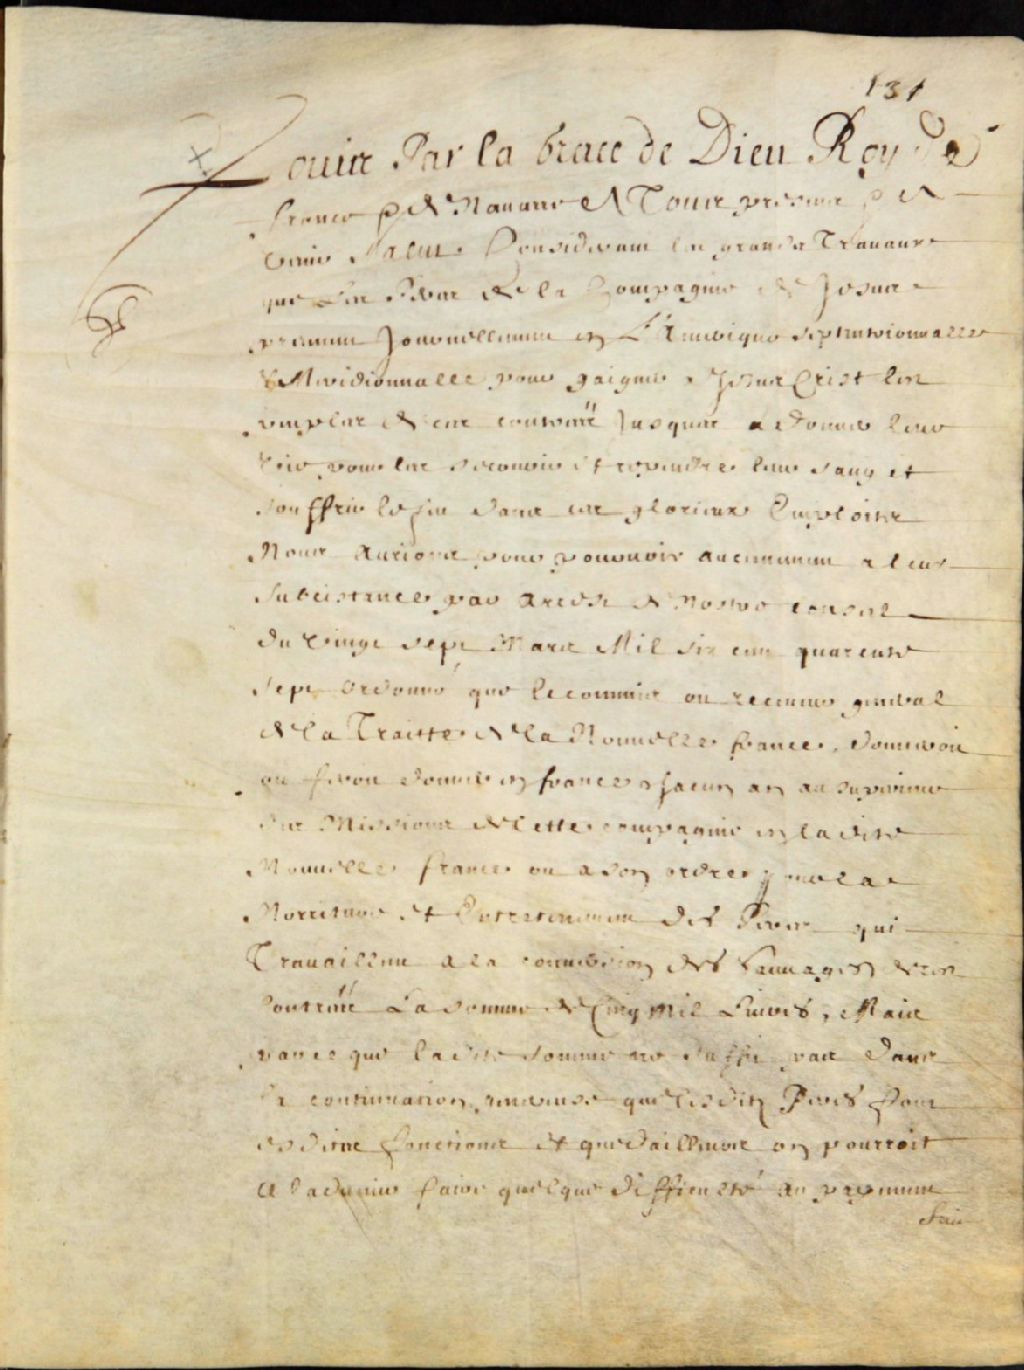 131
Louis Par la Grace de Dieu Roy de
france & de Nauarre A Tous presens &
venir Salut Considerant les grands Trauaux
que les Peres de la Compagnie de Jesus
prennent Journellement en L'Amerique septentrionnalle
& Meridionnalle pour gaigner a Jesus Crist les
peuples de ces contrées Jusques a donner leur
vie pour les secourir et repandre leur sang et
souffrir le feu dans ces glorieux Emploits
Nous Aurions pour pouruoir aucunement a leur
subcistance par Arest de Nostre conseil
du vingt sept Mars Mil six cens quarente
sept ordonné que le commis ou receueur general
de la Traitte de la Nouuelle france, donneroit
ou feroit donner en france chacun an au superieur
des Missions de cette compagnie en ladite
Nouuelle france ou a son ordre pour la
Norriture et Entretenement des Peres qui
Trauaillent a la conuersion des Sauuages desd.
Contrées La somme de Cinq mil Liures, Mais
parce que ladite somme ne suffit pas dans
la continuation que lesdits Peres font
esdites fonctions et que d'ailleurs on pourroit
a l'aduenir faire quelque difficulté au payement